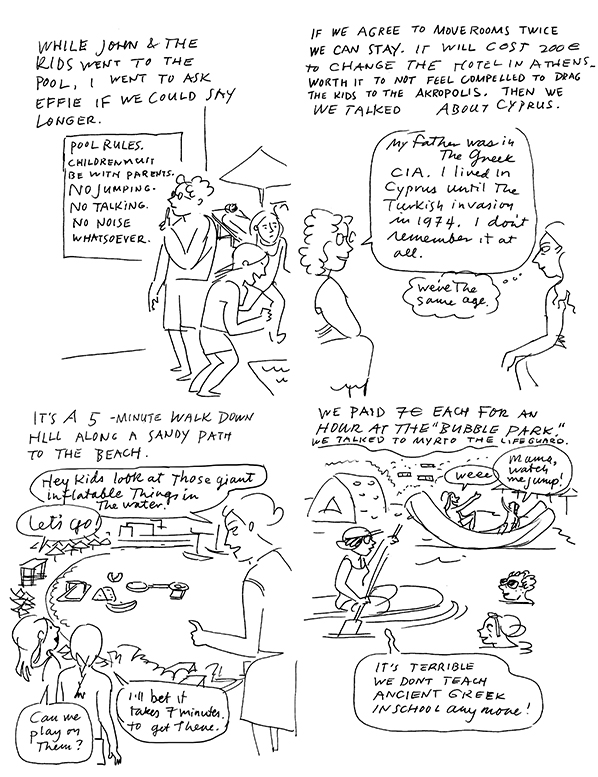 WHILE JOHN & THE
KIDS WENT TO THE
POOL, I WENT TO ASK
EFFIE IF WE COULD SAY
LONGER.
POOL RULES.
CHILDREN MUST
BE WITH PARENTS.
NO JUMPING.
NO TALKING.
NO NOISE
WHATSOEVER.
IF WE AGREE TO MOVE ROOMS TWICE
WE CAN STAY. IT WILL COST 200€
TO CHANGE THE HOTEL IN ATHENS_
WORTH IT TO NOT FEEL COMPELLED TO DRAG
THE KIDS TO THE AKROPOLIS. THEN WE
WE TALKED ABOUT CYPRUS.
My Father was in
The Greek
CIA. I lived in
Cyprus until The
Turkish invasion
in 1974. I don't
remember it at
all.
We're The
same age.
IT'S A 5-MINUTE WALK DOWN
HILL ALONG A SANDY PATH
TO THE BEACH.
Hey Kids look at Those giant
inflatable Things in
The water!
Let's go!
Can we
play on
Them?
I'll bet it
takes 7 minutes
to get There.
WE PAID 7€ EACH FOR AN
HOUR AT THE "BUBBLE PARK."
WE TALKED TO MYRTO THE LIFEGUARD.
weee
Mama,
watch
me jump!
IT'S TERRIBLE
WE DON'T TEACH
ANCIENT GREEK
IN SCHOOL any more!